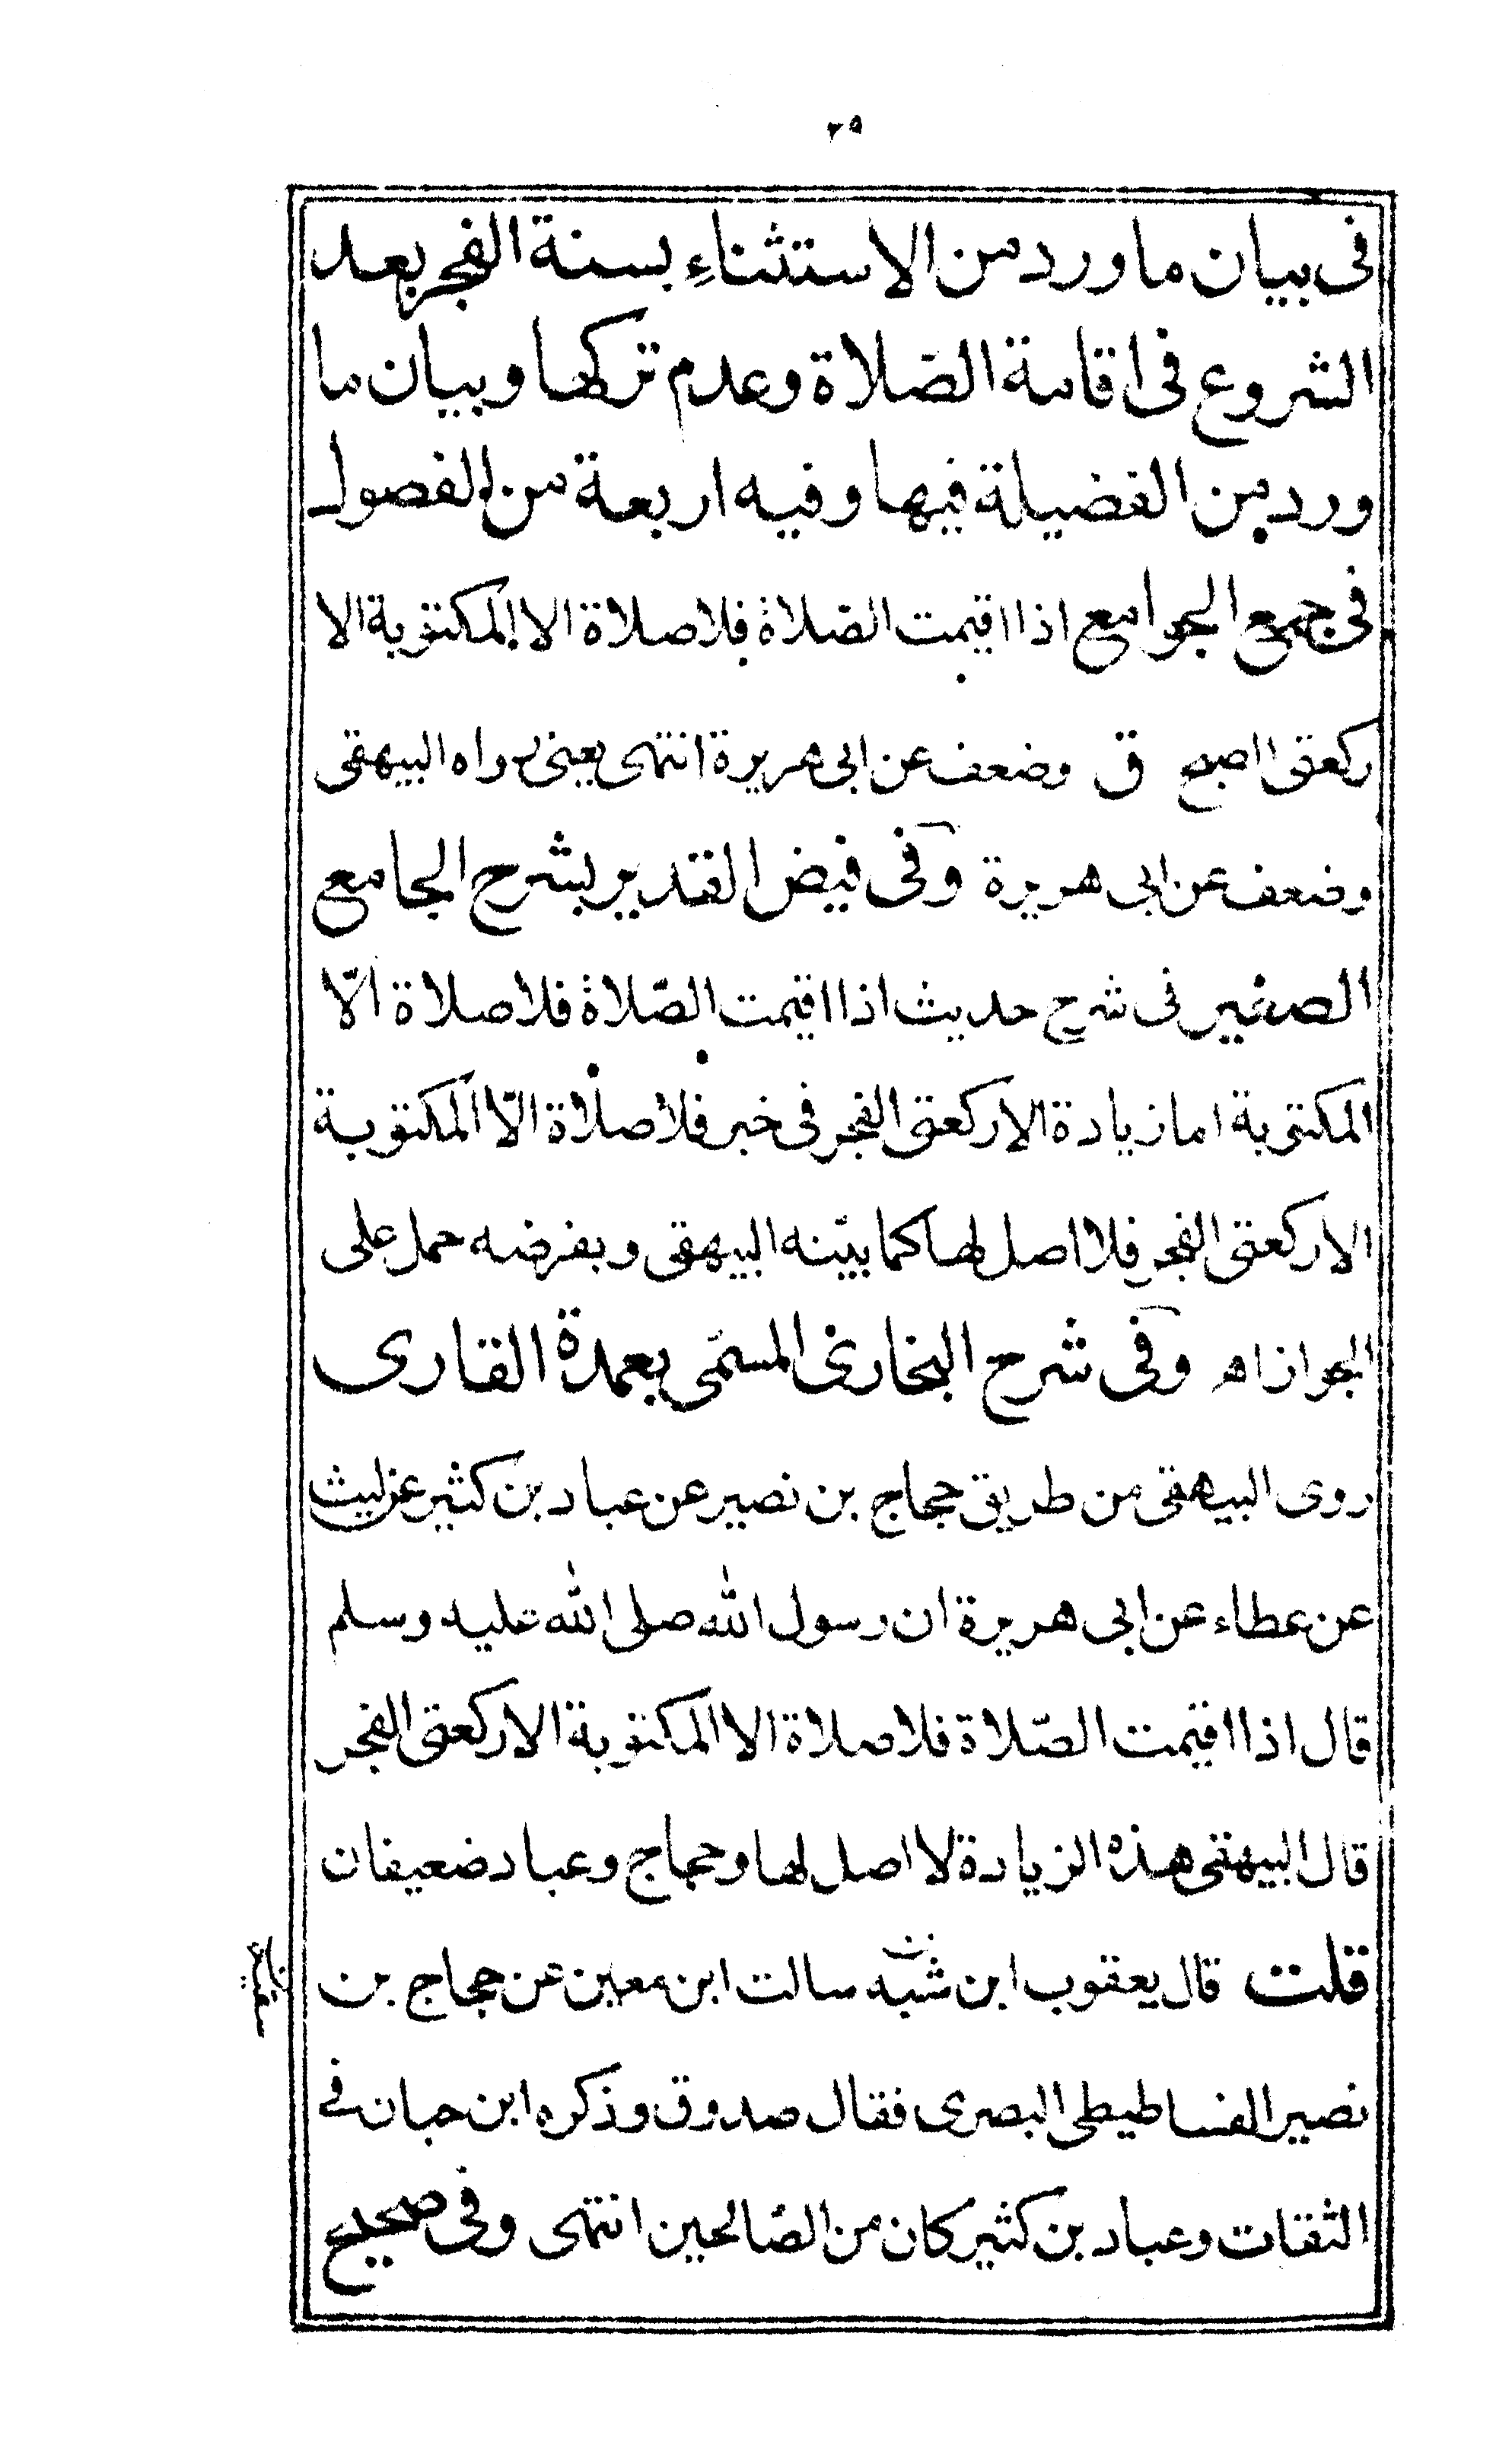 ٢٥
فى بيان ما ورد من الاستثناءِ بسنة الفجر بعد
الشروع فى اقامة الصّلاة وعدم تركها وبيان ما
ورد من الفضيلة فيها وفيه اربعة من الفصول
فى جمع الجوامع اذا اقيمت الصّلاة فلا صلاة الا المكتوبة الا
ركعتى الصبح ق وضعف عن ابى هريرة انتهى يعنى رواه البيهقى
وضعف عن ابى هريرة وفى فيض القدير بشرح الجامع
الصغير فى شرح حديث اذا اقيمت الصّلاة فلا صلاة الّا
المكتوبة اما زيادة الا ركعتى الفجر فى خبر فلا صلاة الّا المكتوبة
الا ركعتى الفجر فلا اصل لها كما بيّنه البيهقى وبفرضه حمل على
الجواز اه وفى شرح البخارى المسمّى بعمدة القارى
روى البيهقى من طريق حجاج بن نصير عن عباد بن كثير عن ليث
عن عطاء عن ابى هريرة ان رسول الله صلى الله عليه وسلم
قال اذا اقيمت الصّلاة فلا صلاة الا المكتوبة الا ركعتى الفجر
قال البيهقى هذه الزيادة لا اصل لها وحجاج وعباد ضعيفان
قلت قال يعقوب ابن شبه سالت ابن معين عن حجاج بن
نصير الفساطيطى البصرى فقال صدوق وذكره ابن حبان فى
الثقات وعباد بن كثير كان من الصّالحين انتهى وفى صحيح